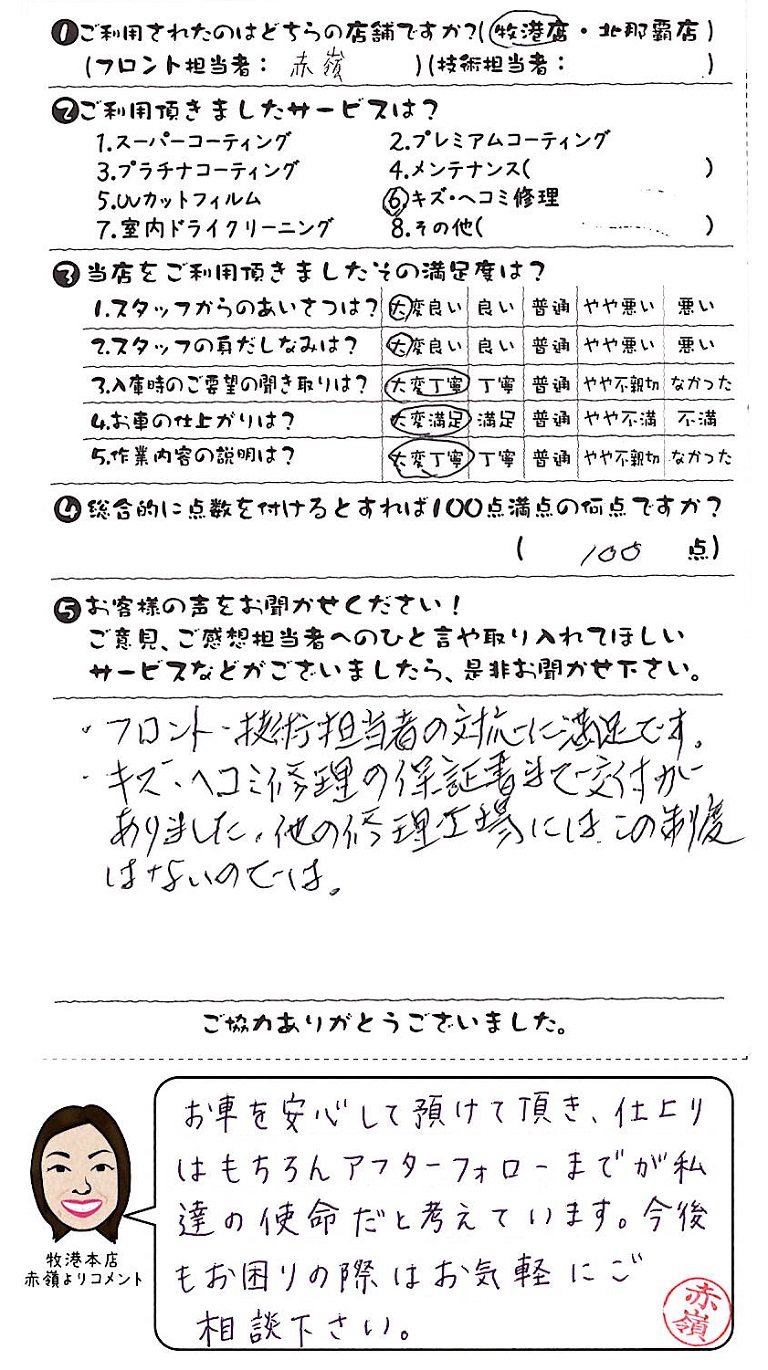 ❶ご利用されたのはどちらの店舗ですか?(牧港店・北那覇店)
(フロント担当者: 赤嶺 )(技術担当者: )
❷ご利用頂きましたサービスは?
1.スーパーコーティング 2.プレミアムコーティング
3.プラチナコーティング 4.メンテナンス( )
5.UVカットフィルム ⑥キズ・ヘコミ修理
7.室内ドライクリーニング 8.その他( )
❸当店をご利用頂きましたその満足度は?
1.スタッフからのあいさつは? 大変良い 良い 普通 やや悪い 悪い
2.スタッフの身だしなみは? 大変良い 良い 普通 やや悪い 悪い
3.入庫時のご要望の聞き取りは? 大変丁寧 丁寧 普通 やや不親切 なかった
4.お車の仕上がりは? 大変満足 満足 普通 やや不満 不満
5.作業内容の説明は? 大変丁寧 丁寧 普通 やや不親切 なかった
❹総合的に点数を付けるとすれば100点満点の何点ですか?
( 100 点)
❺お客様の声をお聞かせください!
ご意見、ご感想担当者へのひと言や取り入れてほしい
サービスなどがございましたら、是非お聞かせ下さい。
・フロント・技術担当者の対応に満足です。
・キズ・ヘコミ修理の保証書まで交付が
ありました。他の修理工場にはこの制度
はないのでは。
ご協力ありがとうございました。
お車を安心して預けて頂き、仕上り
はもちろんアフターフォローまでが私
達の使命だと考えています。今後
もお困りの際はお気軽にご
相談下さい。
牧港本店
赤嶺よりコメント
赤嶺